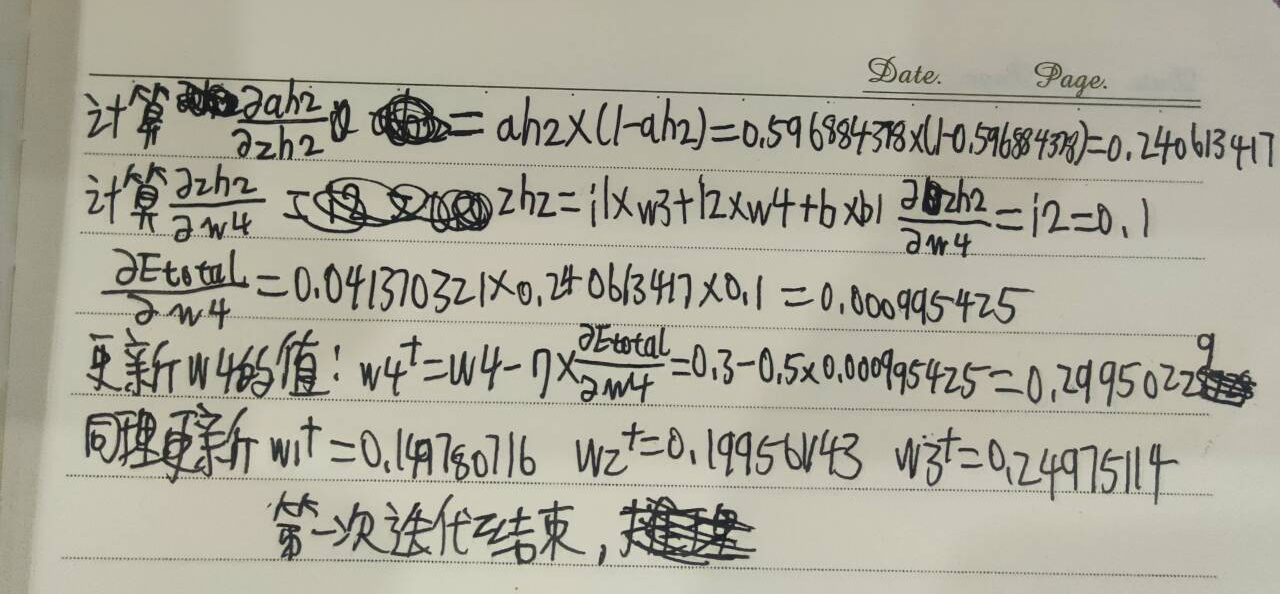 Date. Page.
计算 ∂ah2/∂zh2 = ah2×(1-ah2)=0.596884378×(1-0.596884378)=0.240613417
计算 ∂zh2/∂w4 zh2=i1×w3+i2×w4+b×b1 ∂zh2/∂w4=i2=0.1
∂Etotal/∂w4=0.041370321×0.240613417×0.1=0.000995425
更新w4的值:w4⁺=w4-η×∂Etotal/∂w4=0.3-0.5×0.000995425=0.29950229
同理更新w1⁺=0.149780716 w2⁺=0.19956143 w3⁺=0.24975114
第一次迭代结束,